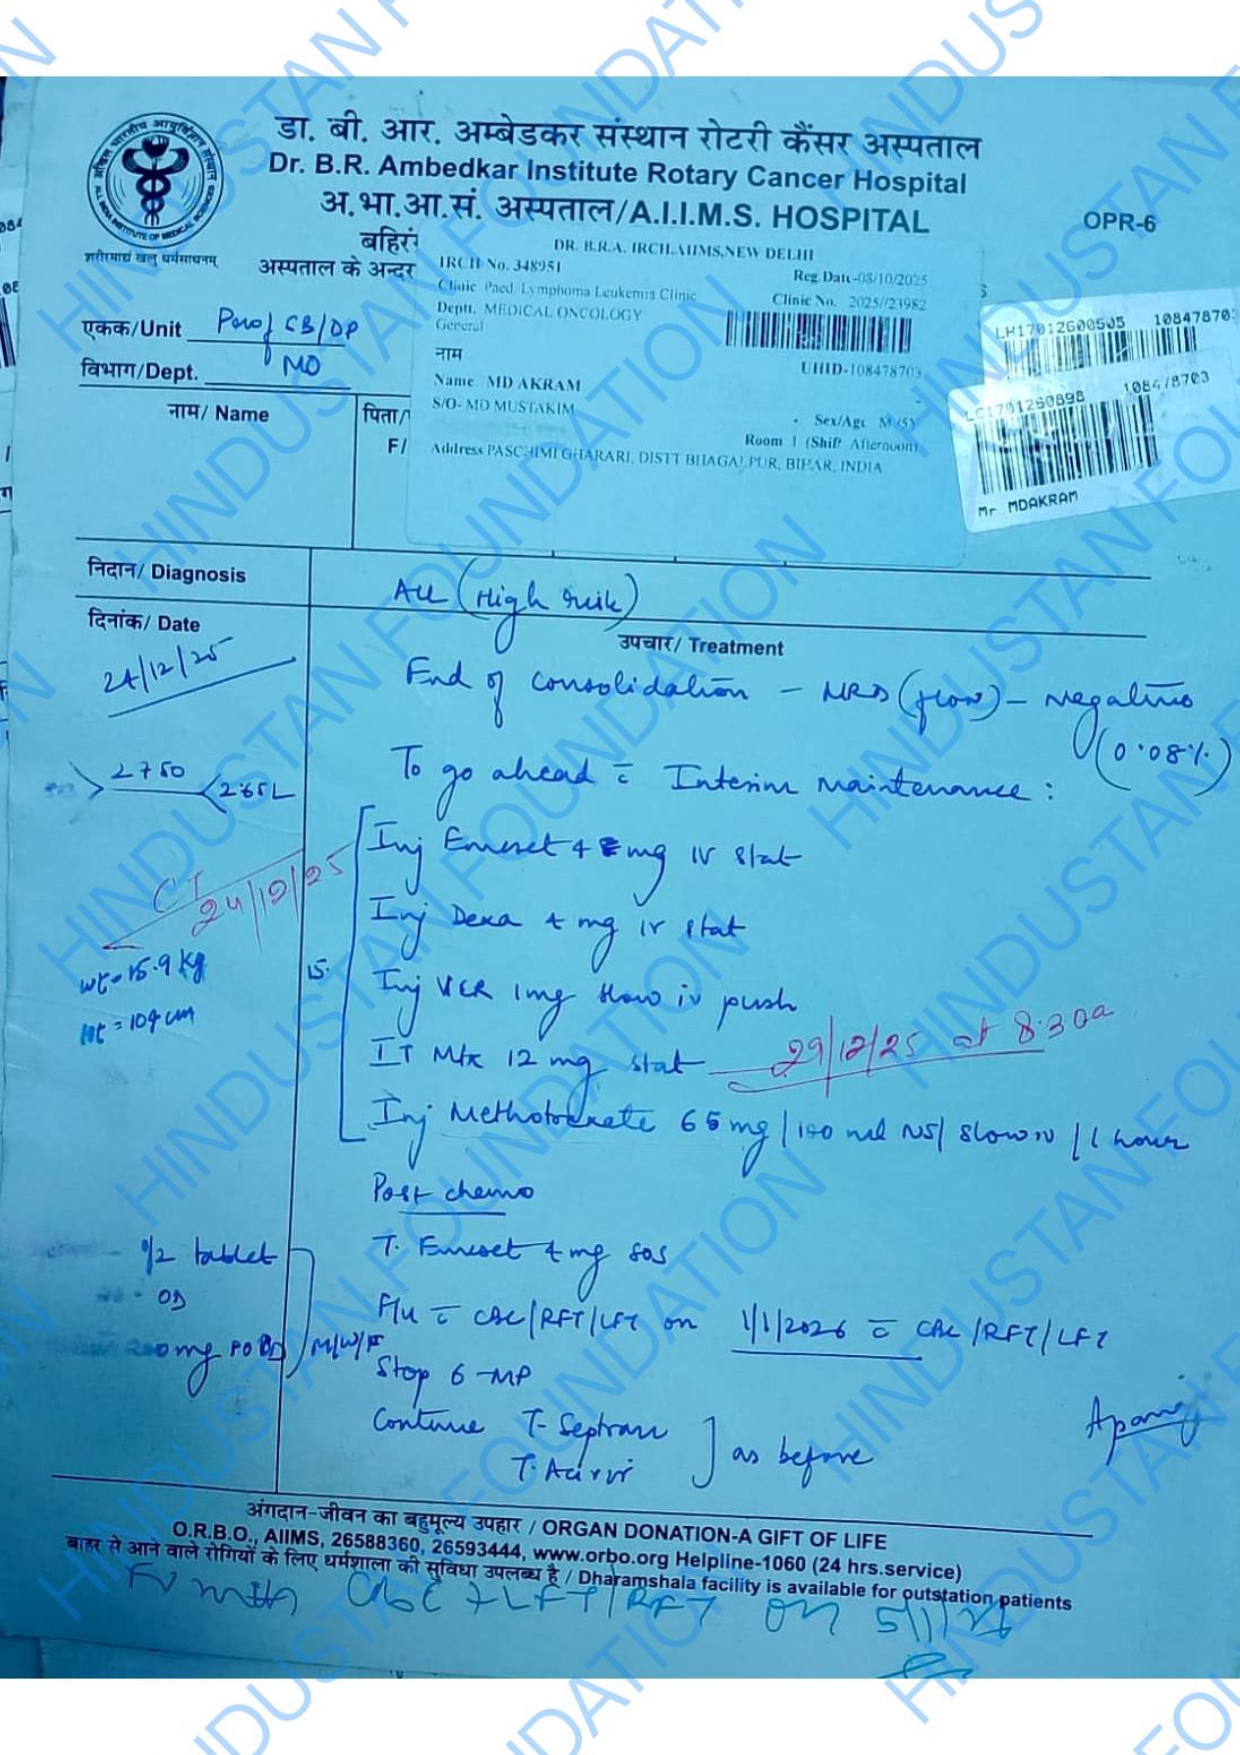 डा. बी. आर. अम्बेडकर संस्थान रोटरी कैंसर अस्पताल
Dr. B.R. Ambedkar Institute Rotary Cancer Hospital
अ.भा.आ.सं. अस्पताल/A.I.I.M.S. HOSPITAL
OPR-6
शरीरमाद्यं खलु धर्मसाधनम्
बहिरं
अस्पताल के अन्दर
DR. B.R.A. IRCH,AIIMS,NEW DELHI
IRCH No. 348951
Reg.Date-08/10/2025
Clinic Paed. Lymphoma Leukemia Clinic
Clinic No. 2025//23982
Deptt. MEDICAL ONCOLOGY
General
UHID-108478703
नाम
Name MD AKRAM
S/O- MD MUSTAKIM
Sex/Age M/5Y
Room 1 (Shift Afternoon)
Address PASCHIMI GHARARI, DISTT BHAGALPUR, BIHAR, INDIA
LH17012600505 108478703
LC1701260898 108478703
Mr MDAKRAM
एकक/Unit Prof CB/DP
विभाग/Dept. MO
नाम/ Name
पिता/
F/
निदान/ Diagnosis
ALL (High risk)
दिनांक/ Date
उपचार/ Treatment
24/12/25
End of consolidation - MRD (flow) - Negative
(0.08%)
2750
265L
To go ahead c̄ Interim Maintenance :
Inj Emeset 4 mg IV stat
CT
24/12/25
Inj Dexa 4 mg IV stat
wt = 15.9 kg
Ht = 104 cm
Inj VCR 1mg slow iv push
IT Mtx 12 mg stat 29/12/25 at 8:30a
Inj Methotrexate 65 mg / 100 ml NS / slow IV / 1 hour
Post chemo
T. Emeset 4 mg SOS
1/2 tablet
OD
F/u c̄ CBC/RFT/LFT on 1/1/2026 c̄ CBC/RFT/LFT
mg PO BD M/W/F
Stop 6-MP
Continue T. Septran
T. Acivir
as before
अंगदान-जीवन का बहुमूल्य उपहार / ORGAN DONATION-A GIFT OF LIFE
O.R.B.O., AIIMS, 26588360, 26593444, www.orbo.org Helpline-1060 (24 hrs.service)
बाहर से आने वाले रोगियों के लिए धर्मशाला की सुविधा उपलब्ध है / Dharamshala facility is available for outstation patients
FU with CBC + LFT/RFT on 5/1/26
HINDUSTAN FOUNDATION